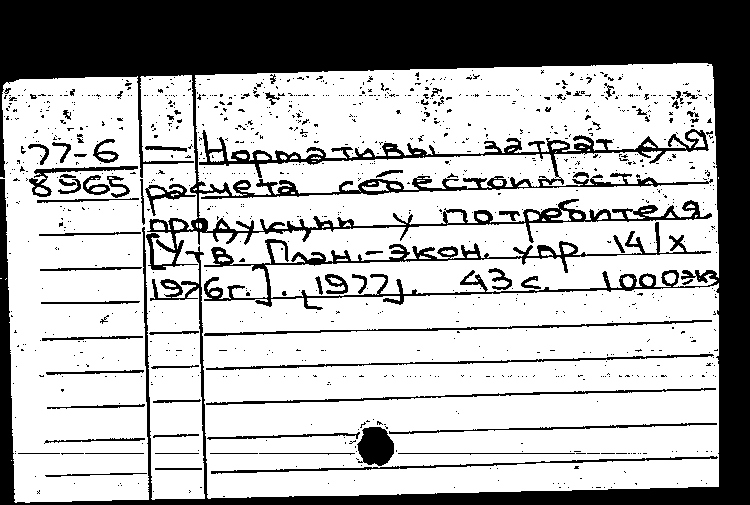 77-6 — Нормативы затрат для
8965 расчета себестоимости
продукции у потребителя
[Утв. План.-экон. упр. 14/X
1976г.]. [1977]. 43 с. 1000экз